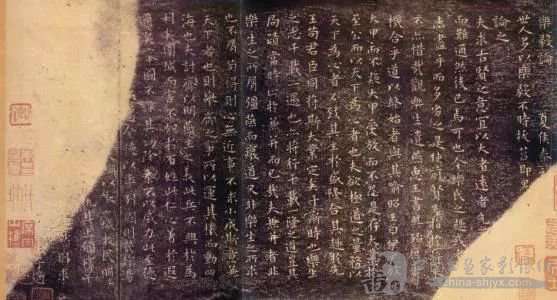 樂毅論 夏侯泰
世人多以樂毅不時拔莒即墨
論之
夫求古賢之意宜以大者遠者先
而難通然後已焉可也今樂氏之趣
盡乎而多劣之是使前賢失指於將
不亦惜哉觀樂生遺燕惠王書其殆
機合乎道以終始者與其喻昭王曰伊尹放
大甲而不疑大甲受放而不怨是存大業於
至公而以天下為心者也夫欲極道之量務以
天下為心者必致其主於盛隆合其趣於先
王苟君臣同符斯大業定矣于斯時也樂生
之志千載一遇也亦將行千載一隆之道豈其
局蹟當時止於兼并而已哉夫兼并者非
樂生之所屑彊燕而廢道又非樂生之所求
也不屑苟得則心無近事不求小成斯意兼
天下者也則舉齊之事所以運其機而動四
海也夫討齊以明燕主之義此兵不興於為
利矣圍城而害不加於百姓此仁心著於遐
邇矣舉國不謀其功除暴不以威力此至德
全德以率列國則幾於湯
china-shjyx.com